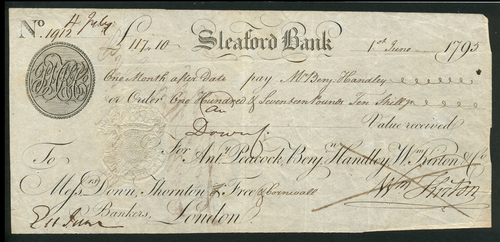 No 1912 4 July
£ 117.10 Sleaford Bank 1st June 1795
One Month after Date pay Mr Benj Handley
or Order One Hundred & Seventeen Pounds Ten Shills
Value received
For Anty Peacock, Benjn Handley, Wm Kirton & Co
To
Messrs Down, Thornton & Free & Cornwall
Wm Kirton
Bankers, London